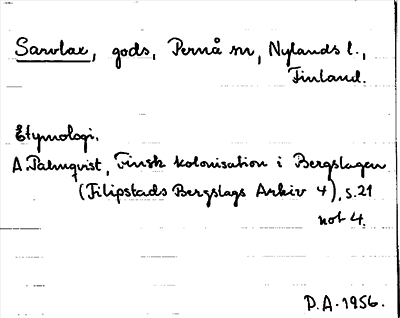 Sarvlax, gods, Pernå sn, Nylands l.,
Finland.
Etymologi.
A. Palmqvist, Finsk kolonisation i Bergslagen
(Filipstads Bergslags Arkiv 4), s. 21
not 4.
P.A. 1956.